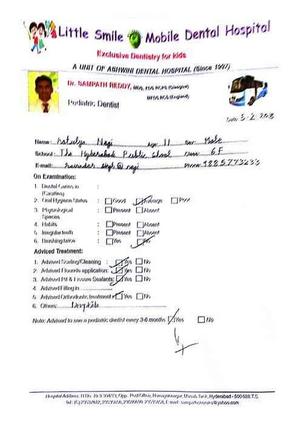 Little Smile Mobile Dental Hospital
Exclusive Dentistry for kids
A UNIT OF ASHWINI DENTAL HOSPITAL (Since 1997)
Dr. SAMPATH REDDY,
Pediatric Dentist
Date: 5-2-
Name: Nagi Age: 11 Sex: Male
School: The Hyderabad Public School Class: 6F
E-mail: Phone:
On Examination:
1. Dental Caries in
2. Oral Hygiene Status : Good Average Poor
3. Physiological : Present Absent
Spaces
4. Habits : Present Absent
5. Irregular teeth : Present Absent
6. : Yes No
Advised Treatment:
1. Advised Scaling/Cleaning : Yes No
2. Advised Flouride application : Yes No
3. Advised Pit & Fissure Sealants : Yes No
4. Advised Filling in
5. Advised Orthodontic treatment : Yes No
6. Others:
Note: Advised to see a pediatric dentist every 3-6 months Yes No
Hospital Address: